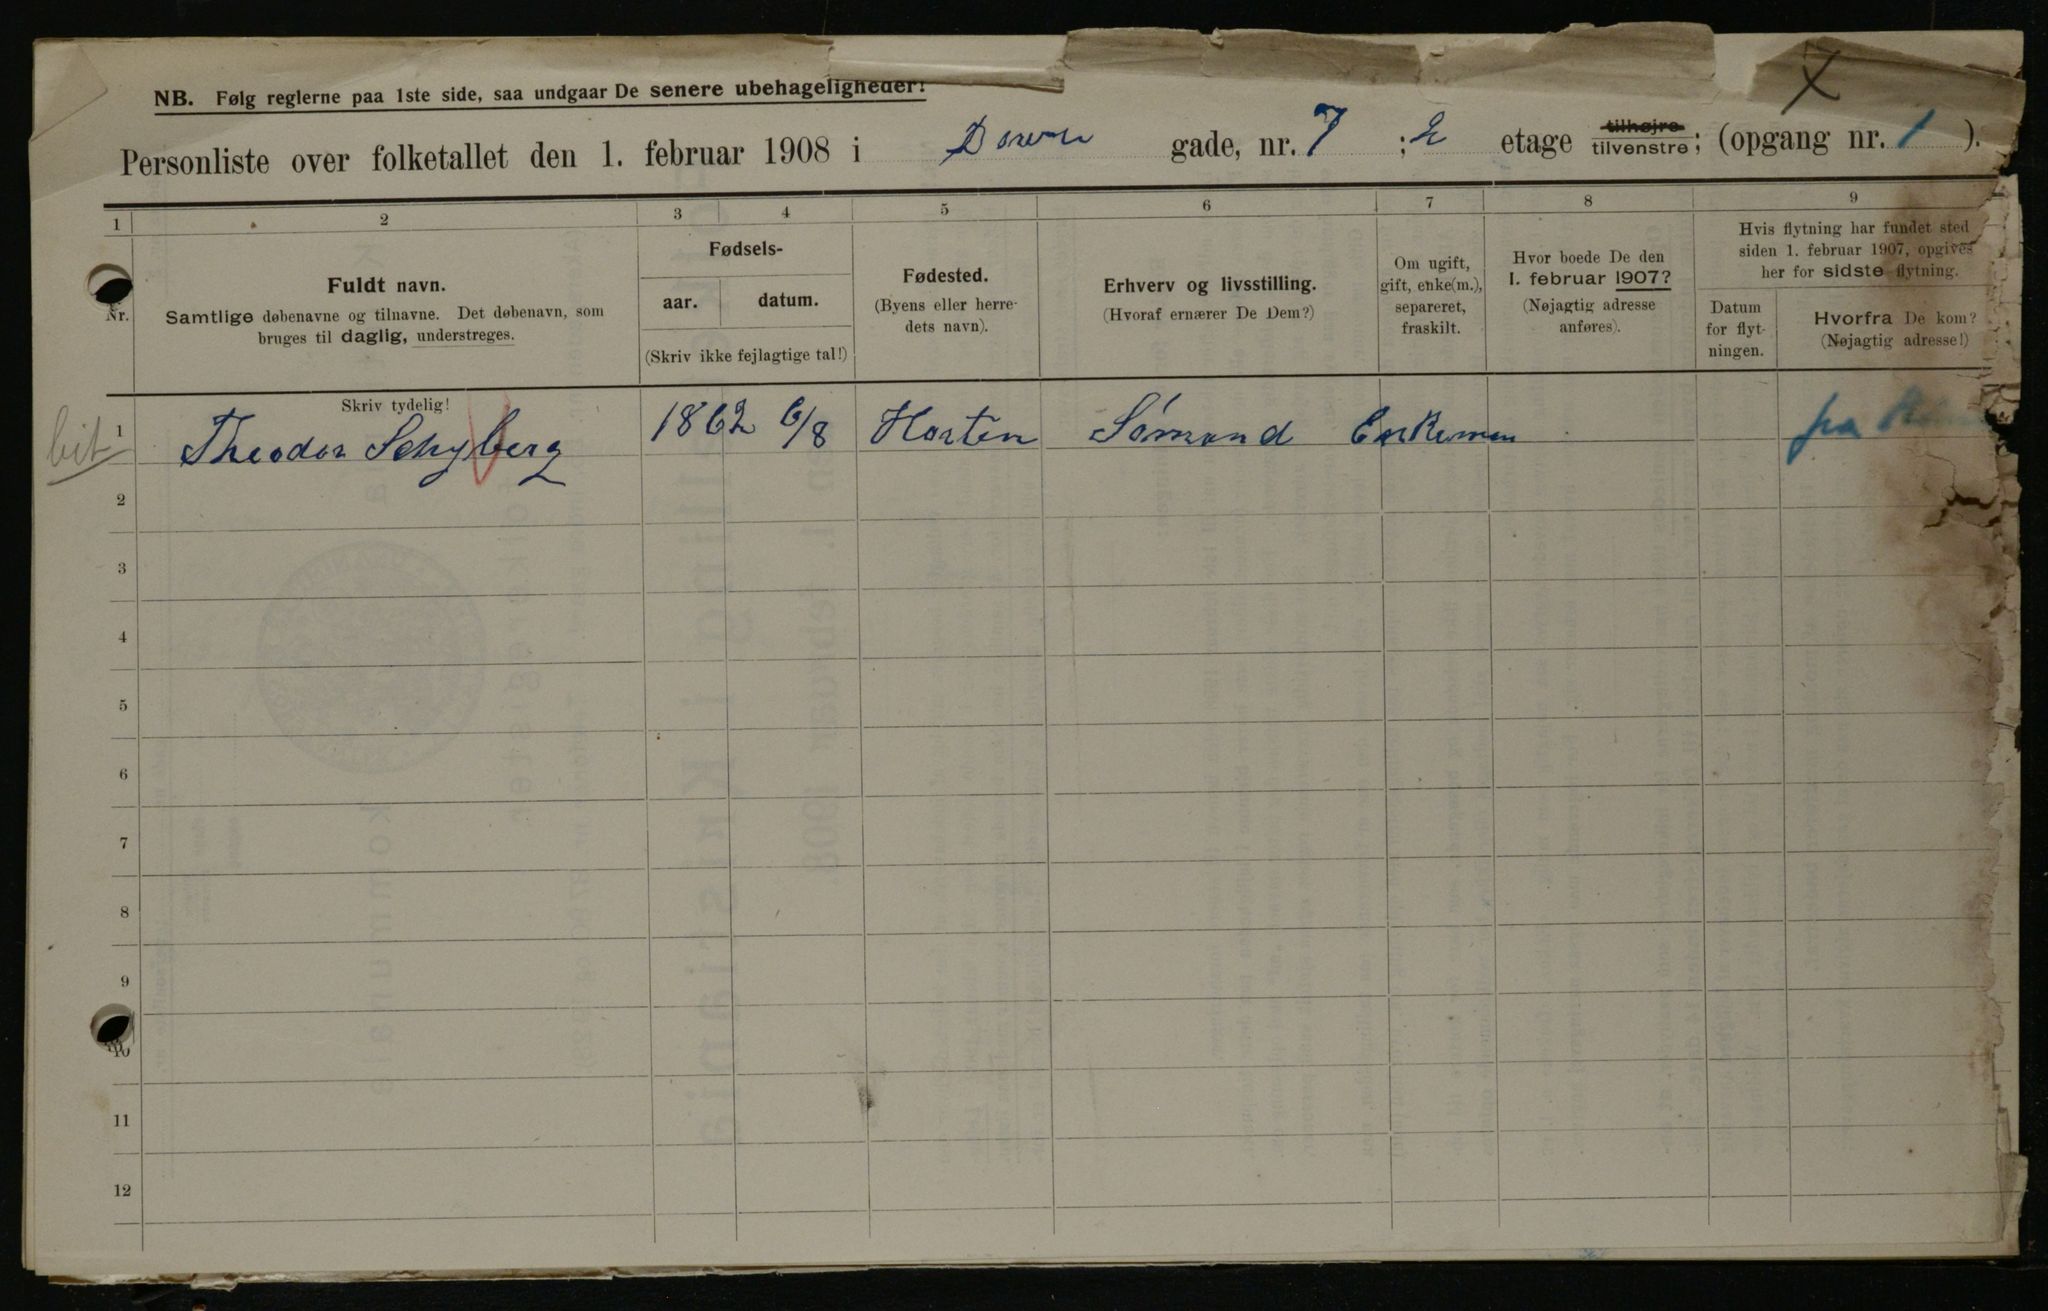 NB. Følg reglerne paa 1ste side, saa undgaar De senere ubehageligheder!
Personliste over folketallet den 1. februar 1908 i gade, nr. 7 ; 2 etage tilhøjre tilvenstre; (opgang nr. 1 ).
1 2 3 4 5 6 7 8 9
Nr.
Fuldt navn.
Samtlige døbenavne og tilnavne. Det døbenavn, som
bruges til daglig, understreges.
Fødsels-
aar. datum.
(Skriv ikke fejlagtige tal!)
Fødested.
(Byens eller herre-
dets navn).
Erhverv og livsstilling.
(Hvoraf ernærer De Dem?)
Om ugift,
gift, enke(m.),
separeret,
fraskilt.
Hvor boede De den
1. februar 1907?
(Nøjagtig adresse
anføres).
Hvis flytning har fundet sted
siden 1. februar 1907, opgives
her for sidste flytning.
Datum
for flyt-
ningen.
Hvorfra De kom?
(Nøjagtig adresse!)
Skriv tydelig!
bit 1 Theodor Schyberg 1862 6/8 Horten Sømand Enkeman fra
2
3
4
5
6
7
8
9
10
11
12